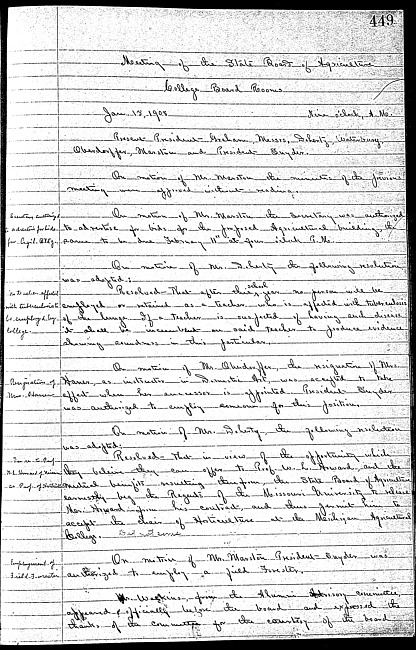 449
Meeting of the State Board of Agriculture
College Board Rooms
Jan. 15, 1908 Nine o'clock, A.M.
Present President Graham, Messrs, Doherty, Waterbury,
Oberdorffer, Marston and President Snyder.
On motion of Mr. Marston the minutes of the previous
meeting were approved without reading.
Secretary authorized
to advertise for bids
for Agril. Bldg.
On motion of Mr. Marston the Secretary was authorized
to advertise for bids for the proposed Agricultural building, the
same to be due February 11" at four o'clock P.M.
On motion of Mr. Doherty the following resolution
was adopted:
No teacher afflicted
with tuberculosis to
be employed by
College.
Resolved - That after this school year no person will be
employed or retained as a teacher who is afflicted with tuberculosis
of the lungs. If a teacher is suspected of having said disease
it shall be incumbent on said teacher to produce evidence
showing soundness in this particular.
Resignation of
Mrs. Haner
On motion of Mr. Oberdorffer, the resignation of Mrs.
Haner, as instructor in Domestic Art, was accepted to take
effect when her successor is appointed. President Snyder
was authorized to employ someone for this position.
On motion of Mr. Doherty the following resolution
was adopted:
W. L. Howard of Missouri
as Prof. of Horticulture
Resolved - That in view of the opportunity which
they believe they can offer to Prof. W. L. Howard, and the
mutual benefits resulting therefrom, the State Board of Agriculture
earnestly beg the Regents of the Missouri University to release
Mr. Howard from his contract, and thus permit him to
accept the chair of Horticulture at the Michigan Agricultural
College.
Employment of
Field Forester
On motion of Mr. Marston President Snyder was
authorized to employ a field Forester.
Mr. Watkins, from the Alumni Advisory committee,
appeared officially before the board and expressed the
thanks of the committee for the courtesy of the board